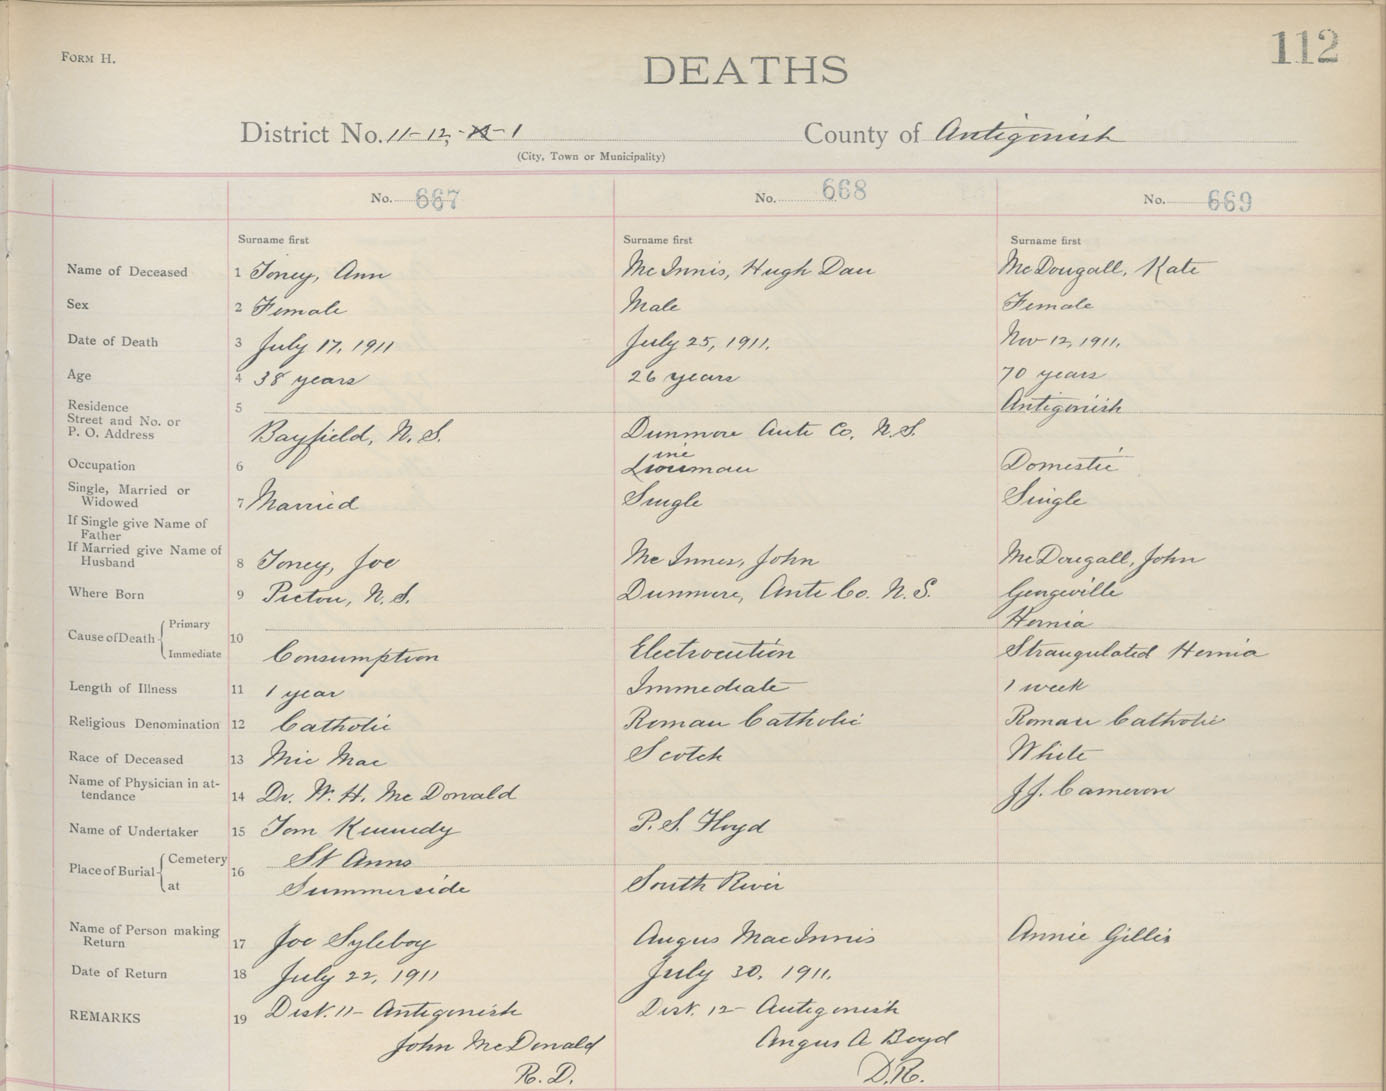 FORM H.
112
DEATHS
District No. 11-12,-13-1
County of Antigonish
(City, Town or Municipality)
No. 667 No. 668 No. 669
Surname first Surname first Surname first
Name of Deceased 1 Toney, Ann McInnis, Hugh Dan McDougall, Kate
Sex 2 Female Male Female
Date of Death 3 July 17, 1911 July 25, 1911. Nov 12, 1911.
Age 4 38 years 26 years 70 years
Residence 5 Antigonish
Street and No. or
P. O. Address Bayfield, N. S. Dunmore Ante Co, N.S.
Occupation 6 Lineman Domestic
Single, Married or
Widowed 7 Married Single Single
If Single give Name of
Father
If Married give Name of
Husband 8 Toney, Joe McInnes, John McDougall, John
Where Born 9 Pictou, N.S. Dunmore, Ante Co. N.S. Georgeville
Cause of Death Primary 10 Hernia
Immediate Consumption Electrocution Strangulated Hernia
Length of Illness 11 1 year Immediate 1 week
Religious Denomination 12 Catholic Roman Catholic Roman Catholic
Race of Deceased 13 Mic Mac Scotch White
Name of Physician in at-
tendance 14 Dr. W. H. McDonald J.J. Cameron
Name of Undertaker 15 Tom Kennedy P. S. Floyd
Place of Burial Cemetery 16 St Anns
at Summerside South River
Name of Person making
Return 17 Joe Syleboy Angus MacInnis Annie Gillis
Date of Return 18 July 22, 1911 July 30, 1911.
REMARKS 19 Dist. 11- Antigonish Dist. 12- Antigonish
John McDonald Angus A Boyd
R. D. D.R.